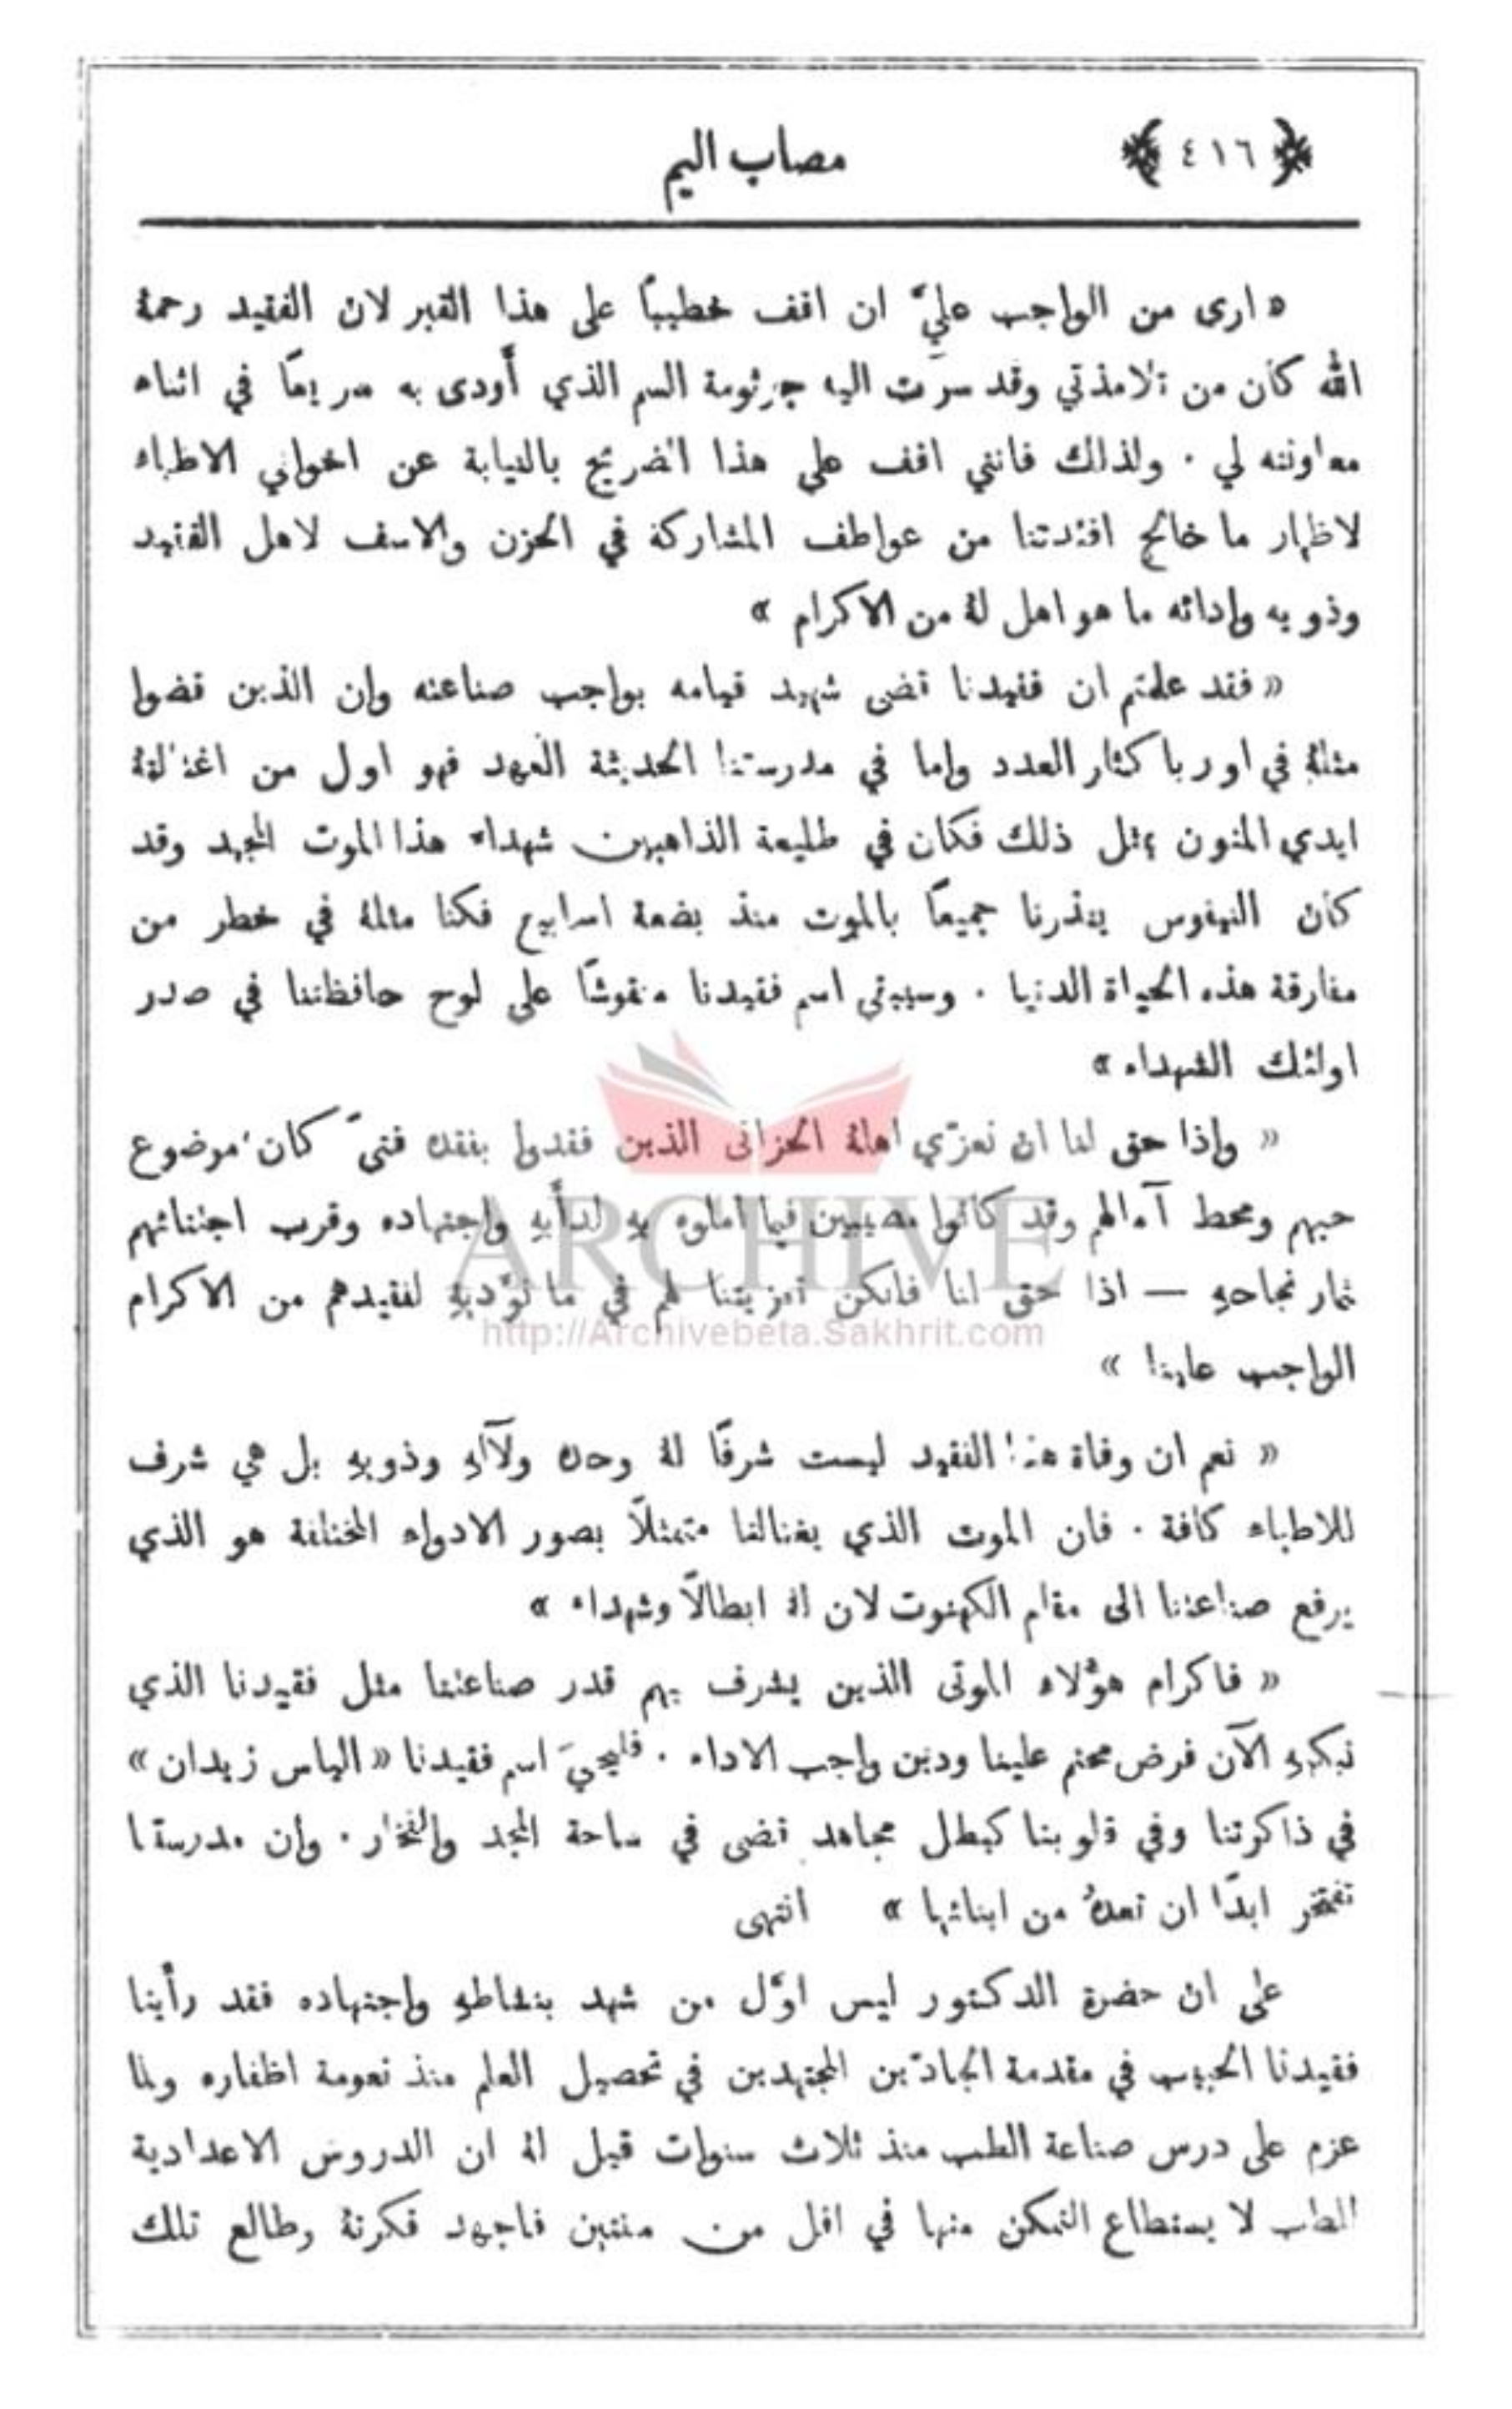 ﴿ ٤١٦ ﴾ مصاب اليم
« ارى من الواجب عليَّ ان اقف خطيبًا على هذا القبر لان الفقيد رحمهُ
الله كان من تلامذتي وقد سرَت اليه جرثومة السم الذي أودى به سريعًا في اثناء
معاونته لي . ولذلك فانني اقف على هذا الضريح بالنيابة عن اخواني الاطباء
لاظهار ما خالج افئدتنا من عواطف المشاركة في الحزن والاسف لاهل الفقيد
وذويه وادائه ما هو اهل لهُ من الاكرام »
« فقد علمتم ان فقيدنا قضى شهيد قيامه بواجب صناعته وان الذين قضوا
مثلهُ في اوربا كثار العدد واما في مدرستنا الحديثة العهد فهو اول من اغتالتهُ
ايدي المنون بمثل ذلك فكان في طليعة الذاهبين شهداء هذا الموت المجيد وقد
كان التيفوس ينذرنا جميعًا بالموت منذ بضعة اسابيع فكنا مثلهُ في خطر من
مفارقة هذه الحياة الدنيا . وسيبقى اسم فقيدنا منقوشًا على لوح حافظتنا في صدر
اولئك الشهداء »
« واذا حق لنا ان نعزّي اهلهُ الحزانى الذين فقدوا بفقده فتىً كان موضوع
حبهم ومحط آمالهم وقد كانوا مصيبين فيما املوه بهِ لدأبهِ واجتهاده وقرب اجتنائهم
ثمار نجاحهِ — اذا حق لنا فلتكن تعزيتنا لهم في ما نؤدّيهِ لفقيدهم من الاكرام
الواجب علينا »
« نعم ان وفاة هذا الفقيد ليست شرفًا لهُ وحده ولآلهِ وذويهِ بل هي شرف
للاطباء كافة . فان الموت الذي يغتالنا متمثلاً بصور الادواء المختلفة هو الذي
يرفع صناعتنا الى مقام الكهنوت لان لهُ ابطالاً وشهداء »
« فاكرام هؤلاء الموتى الذين يشرف بهم قدر صناعتنا مثل فقيدنا الذي
نبكيهِ الآن فرض محتم علينا ودين واجب الاداء . فليحيَ اسم فقيدنا « الياس زيدان »
في ذاكرتنا وفي قلوبنا كبطل مجاهد قضى في ساحة المجد والفخار . وان مدرستنا
تفتخر ابدًا ان تعدهُ من ابنائها » انتهى
على ان حضرة الدكتور ليس اوّل من شهد بنشاطهِ واجتهاده فقد رأينا
فقيدنا الحبيب في مقدمة الجادّين المجتهدين في تحصيل العلم منذ نعومة اظفاره ولما
عزم على درس صناعة الطب منذ ثلاث سنوات قيل لهُ ان الدروس الاعدادية
للطب لا يستطاع التمكن منها في اقل من سنتين فاجهد فكرتهُ وطالع تلك
ARCHIVE
http://Archivebeta.Sakhrit.com